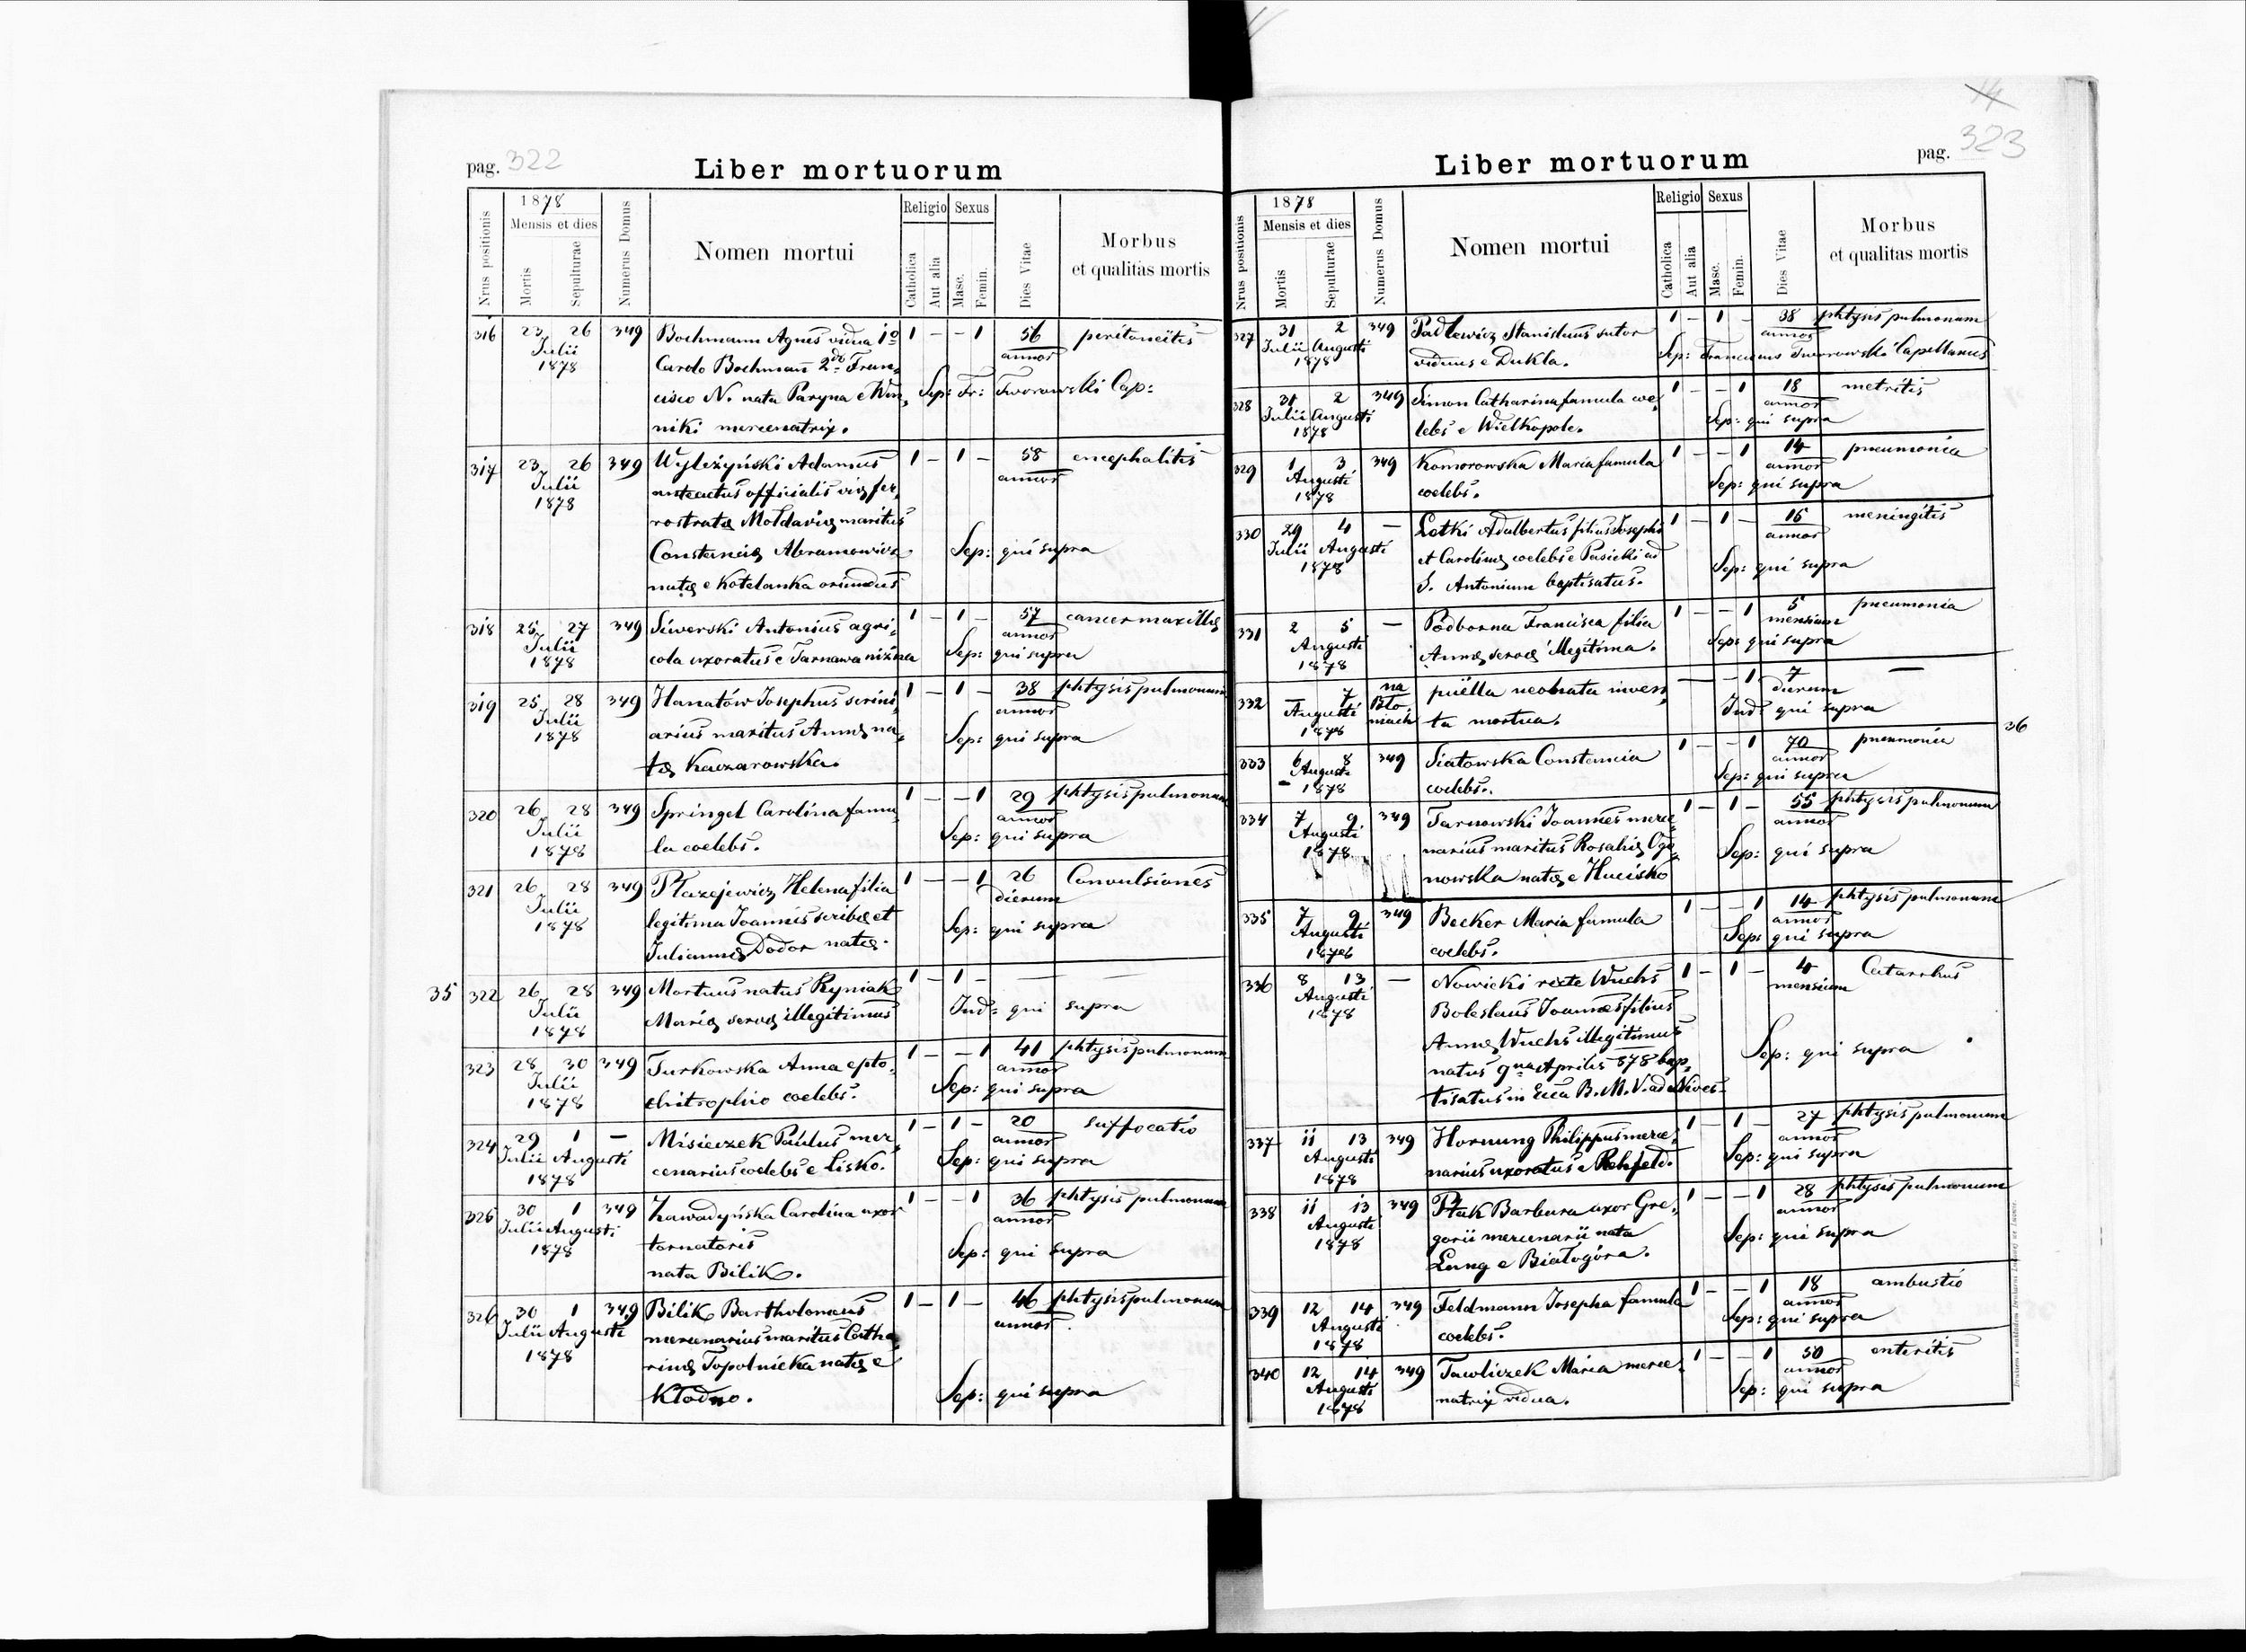 pag. 322
Liber mortuorum
Nrus positionis
1878
Mensis et dies
Mortis
Sepulturae
Numerus Domus
Nomen mortui
Religio
Catholica
Aut alia
Sexus
Masc.
Femin.
Dies Vitae
Morbus
et qualitas mortis
316 23 26 349 Bochmann Agnes vidua 1º 1 – – 1 56 peritoneitis
Julii Carolo Bochmann 2do Fran, annor
1878 cisco N. nata Paryna e Win, Sep: Fr: Tworowski Cap:
niki mercenatrix.
317 23 26 349 Wyleżyński Adamus 1 – 1 – 58 encephalitis
Julii anteactus officialis viæ fer, annor
1878 rostratæ Moldaviæ maritus
Constanciæ Abramowicz Sep: qui supra
natæ e Kotelanka oriundus
318 25 27 349 Siwerski Antonius agri, 1 – 1 – 57 cancer maxillæ
Julii cola uxoratus e Tarnawa niżna annor
1878 Sep: qui supra
319 25 28 349 Hanatów Josephus scrini, 1 – 1 – 38 phtysis pulmonum
Julii arius maritus Annæ na, annor
1878 tæ Kaczarowska. Sep: qui supra
320 26 28 349 Springel Carolina famu, 1 – – 1 29 phtysis pulmonum
Julii la coelebs. annor
1878 Sep: qui supra
321 26 28 349 Płazejewicz Helena filia 1 – – 1 26 Convulsiones
Julii legitima Joannis scribæ et dierum
1878 Juliannæ Dodor natæ. Sep: qui supra
35 322 26 28 349 Mortuus natus Ryniak 1 – 1 – — —
Julii Mariæ servæ illegitimus Ind: qui supra
1878
323 28 30 349 Turkowska Anna e pto, 1 – – 1 41 phtysis pulmonum
Julii chitrophio coelebs. annor
1878 Sep: qui supra
324 29 1 – Misieczek Paulus mer, 1 – 1 – 20 suffocatio
Julii Augusti cenarius coelebs e Lisko. annor
1878 Sep: qui supra
325 30 1 349 Zawadyńska Carolina uxor 1 – – 1 36 phtysis pulmonum
Julii Augusti tornatoris annor
1878 nata Bilik. Sep: qui supra
326 30 1 349 Bilik Bartholomeus 1 – 1 – 46 phtysis pulmonum
Julii Augusti mercenarius maritus Catha, annor
1878 rinæ Topolnicka natæ e
Kłodno. Sep: qui supra
pag. 323
Liber mortuorum
Nrus positionis
1878
Mensis et dies
Mortis
Sepulturae
Numerus Domus
Nomen mortui
Religio
Catholica
Aut alia
Sexus
Masc.
Femin.
Dies Vitae
Morbus
et qualitas mortis
327 31 2 349 Padlewicz Stanislaus sutor 1 – 1 – 38 phtysis pulmonum
Julii Augusti viduus e Dukla. annor
1878 Sep: Franciscus Tworowski Capellanus
328 31 2 349 Simon Catharina famula coe, 1 – – 1 18 metritis
Julii Augusti lebs e Wielkopole. annor
1878 Sep: qui supra
329 1 3 349 Komorowska Maria famula 1 – – 1 14 pneumonia
Augusti coelebs. annor
1878 Sep: qui supra
330 29 4 — Lotki Adalbertus filius Josephi 1 – 1 – 16 meningitis
Julii Augusti et Carolinæ coelebs e Pasieki ad annor
1878 S. Antonium baptisatus. Sep: qui supra
331 2 5 — Podborna Francisca filia 1 – – 1 5 pneumonia
Augusti Annæ servæ illegitima. mensium
1878 Sep: qui supra
332 — 7 na Bło, niach puëlla neonata inven, — – 1 7 —
Augusti ta mortua. dierum
1878 Ind: qui supra
36
333 6 8 349 Siatowska Constancia 1 – – 1 70 pneumonia
Augusti coelebs. annor
1878 Sep: qui supra
334 7 9 349 Tarnowski Joannes merce, 1 – 1 – 55 phtysis pulmonum
Augusti narius maritus Rosaliæ Ogo, annor
1878 nowska natæ e Hucisko Sep: qui supra
335 7 9 349 Becker Maria famula 1 – – 1 14 phtysis pulmonum
Augusti coelebs. annor
1878 Sep: qui supra
336 8 13 — Nowicki recte Wuchs 1 – 1 – 4 Catarrhus
Augusti Boleslaus Joannes filius mensium
1878 Annæ Wuchs illegitimus
natus 9na Aprilis 878 bap, Sep: qui supra
tisatus in Ecca B. M. V. ad Nives.
337 11 13 349 Hornung Philippus merce, 1 – 1 – 27 phtysis pulmonum
Augusti narius uxoratus e Rehfeld. annor
1878 Sep: qui supra
338 11 13 349 Ptak Barbara uxor Gre, 1 – – 1 28 phtysis pulmonum
Augusti gorii mercenarii nata annor
1878 Lang e Białogóra. Sep: qui supra
339 12 14 349 Feldmann Josepha famula 1 – – 1 18 ambustio
Augusti coelebs. annor
1878 Sep: qui supra
340 12 14 349 Tawliczek Maria merce, 1 – – 1 50 enteritis
Augusti natrix vidua. annor
1878 Sep: qui supra